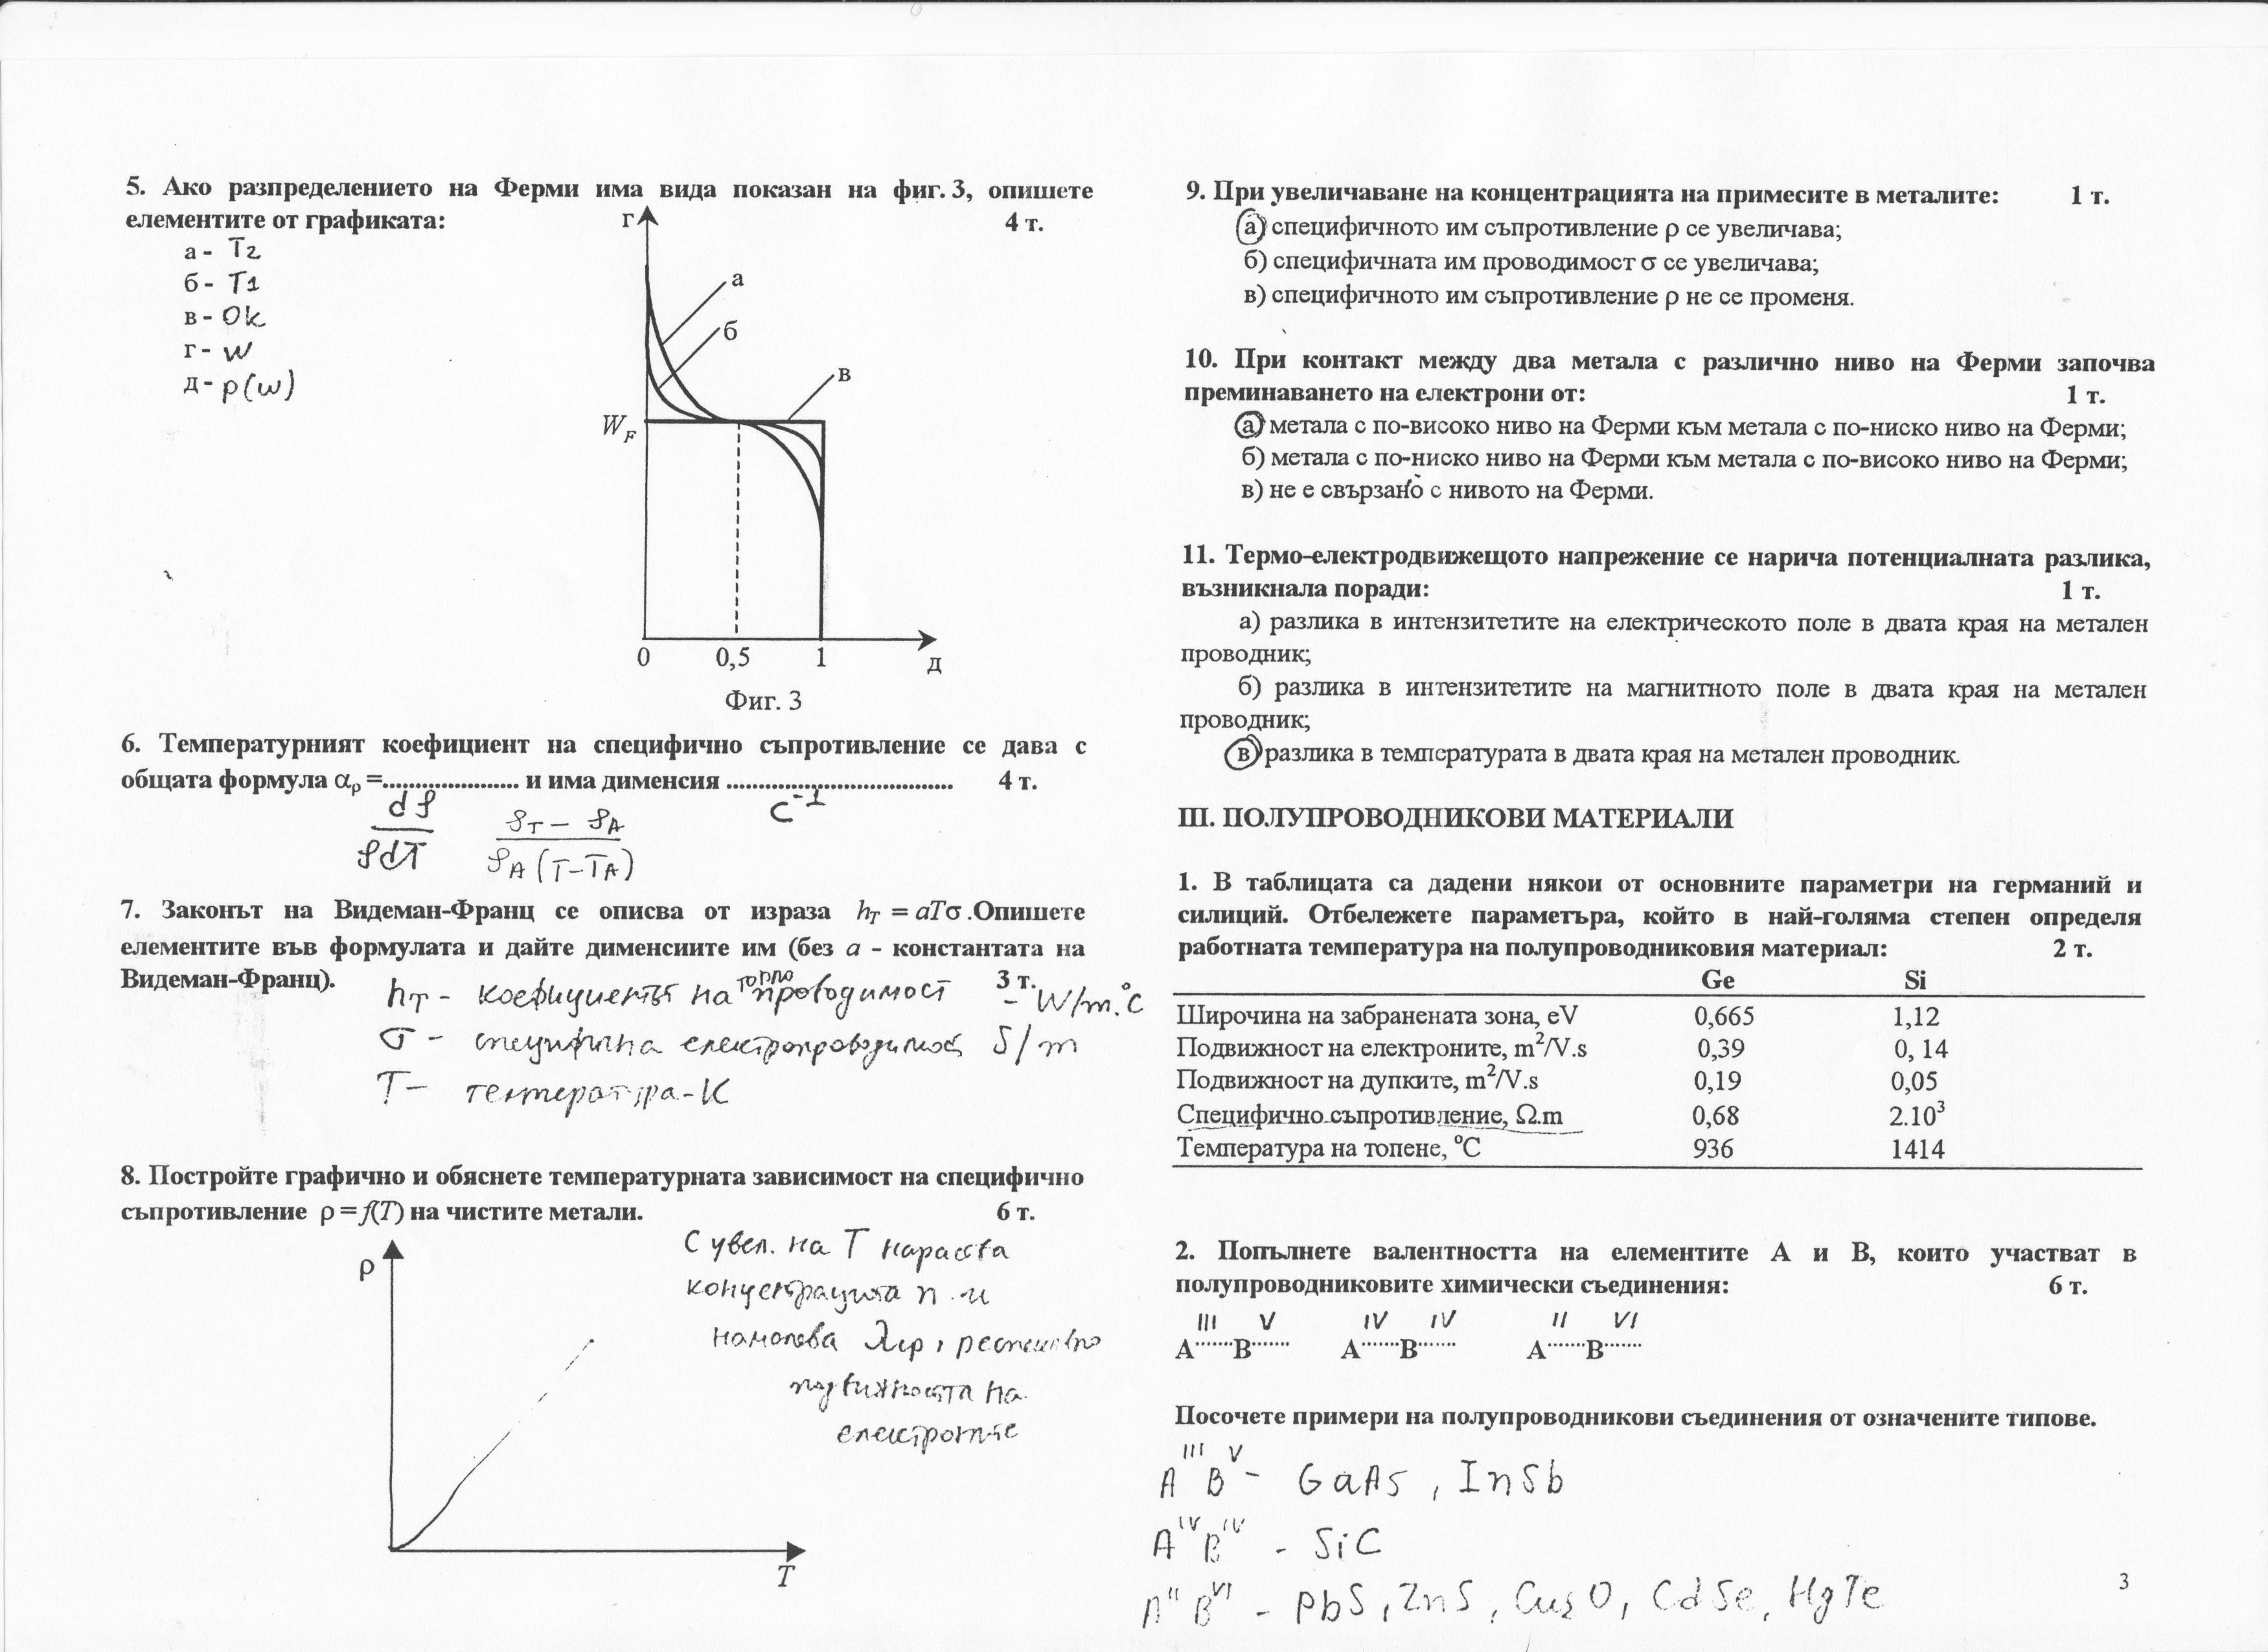 5. Ако разпределението на Ферми има вида показан на фиг. 3, опишете
елементите от графиката: 4 т.
а - T2
б - T1
в - 0k
г - w
д - p(w)
г
а
б
в
W_F
0 0,5 1 д
Фиг. 3
6. Температурният коефициент на специфично съпротивление се дава с
общата формула αρ =..................... и има дименсия .................................... 4 т.
dρ / ρdT (ρT – ρA) / ρA (T–TA) C⁻¹
7. Законът на Видеман-Франц се описва от израза hT = aTσ .Опишете
елементите във формулата и дайте дименсиите им (без a - константата на
Видеман-Франц). 3 т.
hT – коефициентът на топлопроводимост – W/m.°C
σ – специфична електропроводимост S/m
T – температура - K
8. Постройте графично и обяснете температурната зависимост на специфично
съпротивление ρ = f(T) на чистите метали. 6 т.
ρ
T
С увел. на T нараства
концентрацията n и
намалява λср, респективно
подвижността на
електроните
9. При увеличаване на концентрацията на примесите в металите: 1 т.
а) специфичното им съпротивление ρ се увеличава;
б) специфичната им проводимост σ се увеличава;
в) специфичното им съпротивление ρ не се променя.
10. При контакт между два метала с различно ниво на Ферми започва
преминаването на електрони от: 1 т.
а) метала с по-високо ниво на Ферми към метала с по-ниско ниво на Ферми;
б) метала с по-ниско ниво на Ферми към метала с по-високо ниво на Ферми;
в) не е свързано с нивото на Ферми.
11. Термо-електродвижещото напрежение се нарича потенциалната разлика,
възникнала поради: 1 т.
а) разлика в интензитетите на електрическото поле в двата края на метален
проводник;
б) разлика в интензитетите на магнитното поле в двата края на метален
проводник;
в) разлика в температурата в двата края на метален проводник.
III. ПОЛУПРОВОДНИКОВИ МАТЕРИАЛИ
1. В таблицата са дадени някои от основните параметри на германий и
силиций. Отбележете параметъра, който в най-голяма степен определя
работната температура на полупроводниковия материал: 2 т.
Ge Si
Широчина на забранената зона, eV 0,665 1,12
Подвижност на електроните, m²/V.s 0,39 0, 14
Подвижност на дупките, m²/V.s 0,19 0,05
Специфично съпротивление, Ω.m 0,68 2.10³
Температура на топене, °C 936 1414
2. Попълнете валентността на елементите А и В, които участват в
полупроводниковите химически съединения: 6 т.
III V IV IV II VI
А......В...... А......В...... А......В......
Посочете примери на полупроводникови съединения от означените типове.
A^III B^V – GaAs , InSb
A^IV B^IV - SiC
A^II B^VI - PbS, ZnS, Cu2O, CdSe, HgTe
3